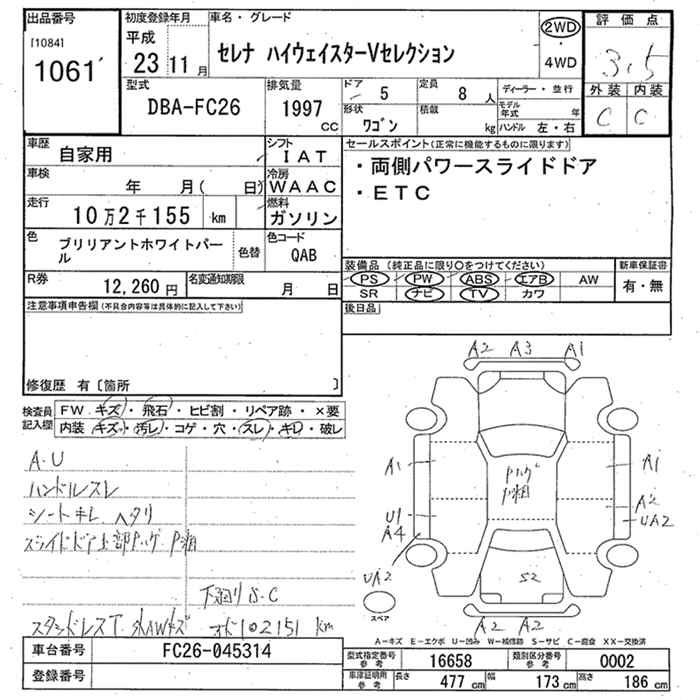 出品番号
[1084]
1061'
初度登録年月
平成
23 11 月
車名・グレード
セレナ ハイウェイスターVセレクション
2WD
・
4WD
評価点
3.5
外装 内装
C C
型式
DBA-FC26
排気量
1997
cc
ドア
5
定員
8 人
形状
ワゴン
積載
kg
ディーラー・並行
モデル年式 年
ハンドル 左・右
車歴
自家用
シフト
IAT
車検
年 月( 日)
冷房
WAAC
走行
10万2千155 km
燃料
ガソリン
色
ブリリアントホワイトパール
色替
色コード
QAB
R券
12,260 円
名変通知期限
月 日
セールスポイント(正常に機能するものに限ります)
・両側パワースライドドア
・ETC
装備品 (純正品に限り〇をつけてください)
PS PW ABS エアB AW
SR ナビ TV カワ
新車保証書
有・無
後日品
注意事項申告欄(不具合内容等は具体的に記入して下さい)
修復歴 有〔箇所 〕
検査員記入欄
FW キズ・飛石・ヒビ割・リペア跡・×要
内装 キズ・汚レ・コゲ・穴・スレ・キレ・破レ
A.U
ハンドルスレ
シートキレ ヘタリ
スライドドア上部Pハゲ P粗
下廻りS.C
スタッドレスT 外AWキズ オド102151 km
A2 A3 A1
A1
Pハゲ
P粗
A1
A2
UA2
U1
A4
UA2
S2
スペア
A2 A2
A-キズ E-エクボ U-凹み W-補修跡 S-サビ C-腐食 XX-交換済
車台番号
FC26-045314
登録番号
型式指定番号
参考
16658
類別区分番号
参考
0002
車庫証明用
参考
長さ
477 cm
幅
173 cm
高さ
186 cm